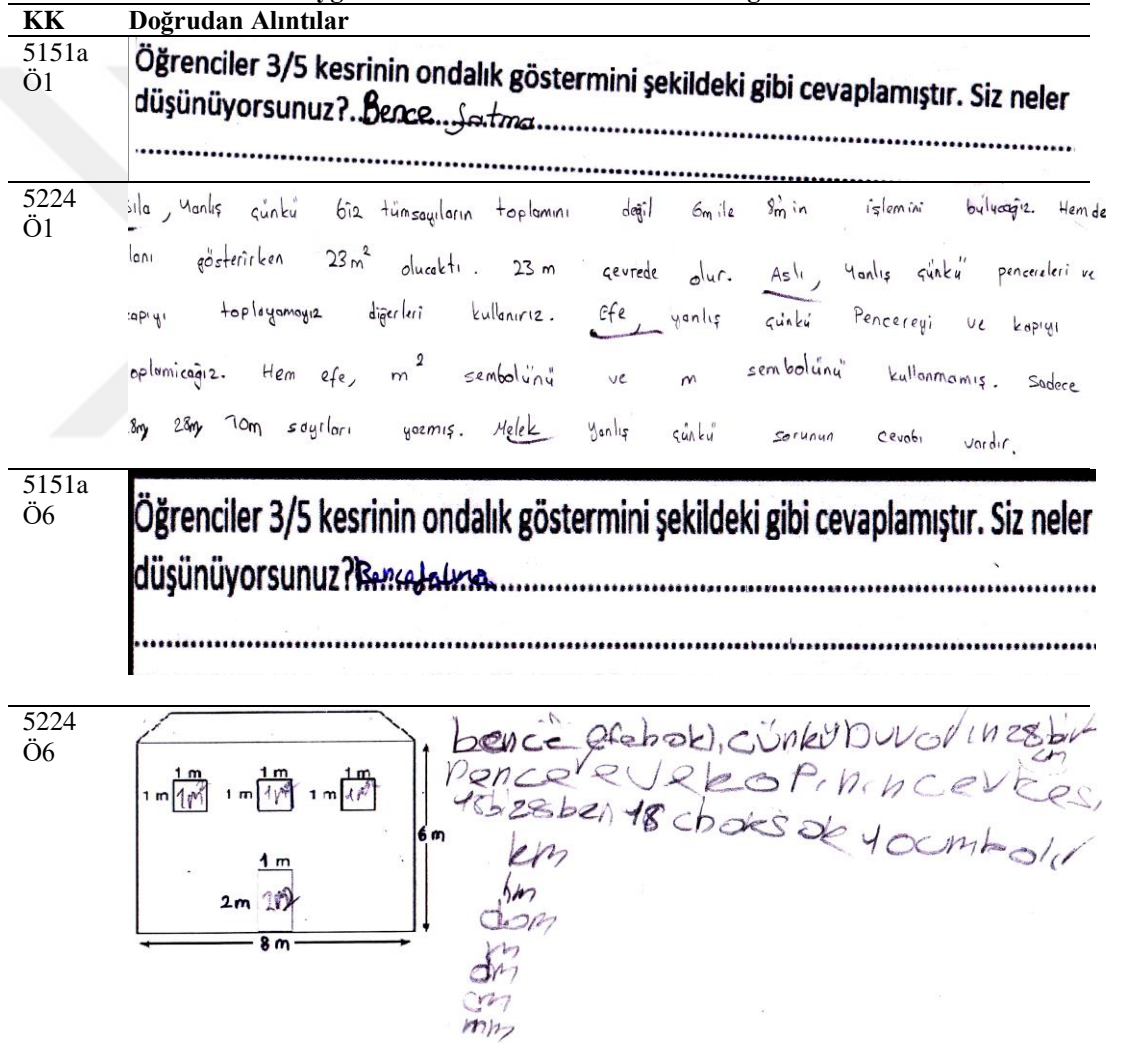 KK Doğrudan Alıntılar
5151a
Ö1
Öğrenciler 3/5 kesrinin ondalık göstermini şekildeki gibi cevaplamıştır. Siz neler
düşünüyorsunuz?..Bence...fatma
5224
Ö1
sıla, Yanlış çünkü biz tümsayıların toplamını değil 6m ile 8m'in işlemini bulucağız. Hemde
lanı gösterirken 23 m² olucaktı. 23 m çevrede olur. Aslı, Yanlış çünkü pencereleri ve
kapıyı toplayamayız diğerleri kullanırız. Efe, yanlış çünkü Pencereyi ve kapıyı
oplamicağız. Hem efe, m² sembolünü ve m sembolünü kullanmamış. Sadece
18m, 28m, 10m sayıları yazmış. Melek Yanlış çünkü sorunun cevabı vardır.
5151a
Ö6
Öğrenciler 3/5 kesrinin ondalık göstermini şekildeki gibi cevaplamıştır. Siz neler
düşünüyorsunuz? Bence fatma
5224
Ö6
1 m 1 m 1 m
1 m 1m² 1 m 1m² 1 m 1m²
6 m
1 m
2m 2m²
8 m
bence efe çünkü Duvarın 28
cm
Pencere ve kapının
18 28 ben 18 10cm kalır
km
hm
dam
m
dm
cm
mm